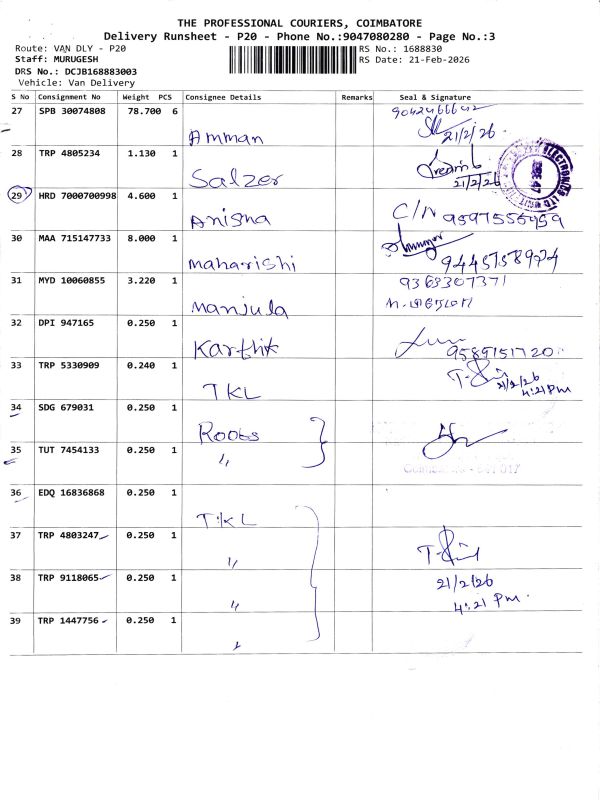 THE PROFESSIONAL COURIERS, COIMBATORE
Delivery Runsheet - P20 - Phone No.:9047080280 - Page No.:3
Route: VAN DLY - P20
RS No.: 1688830
Staff: MURUGESH
RS Date: 21-Feb-2026
DRS No.: DCJB168883003
Vehicle: Van Delivery
S No Consignment No Weight PCS Consignee Details Remarks Seal & Signature
27 SPB 30074808 78.700 6 Amman 21/2/26
28 TRP 4805234 1.130 1 Salzer 21/2/26
29 HRD 7000700998 4.600 1 Anisma C/N 9597555959
30 MAA 715147733 8.000 1 Maharishi
31 MYD 10060855 3.220 1 Manjula 9363307371
32 DPI 947165 0.250 1 Karthik 9589151720
33 TRP 5330909 0.240 1 TKL 21/2/26
4:21 Pm
34 SDG 679031 0.250 1 Roots
35 TUT 7454133 0.250 1 "
36 EDQ 16836868 0.250 1 TKL
37 TRP 4803247 0.250 1 "
38 TRP 9118065 0.250 1 " 21/2/26
4:21 Pm.
39 TRP 1447756 0.250 1 "